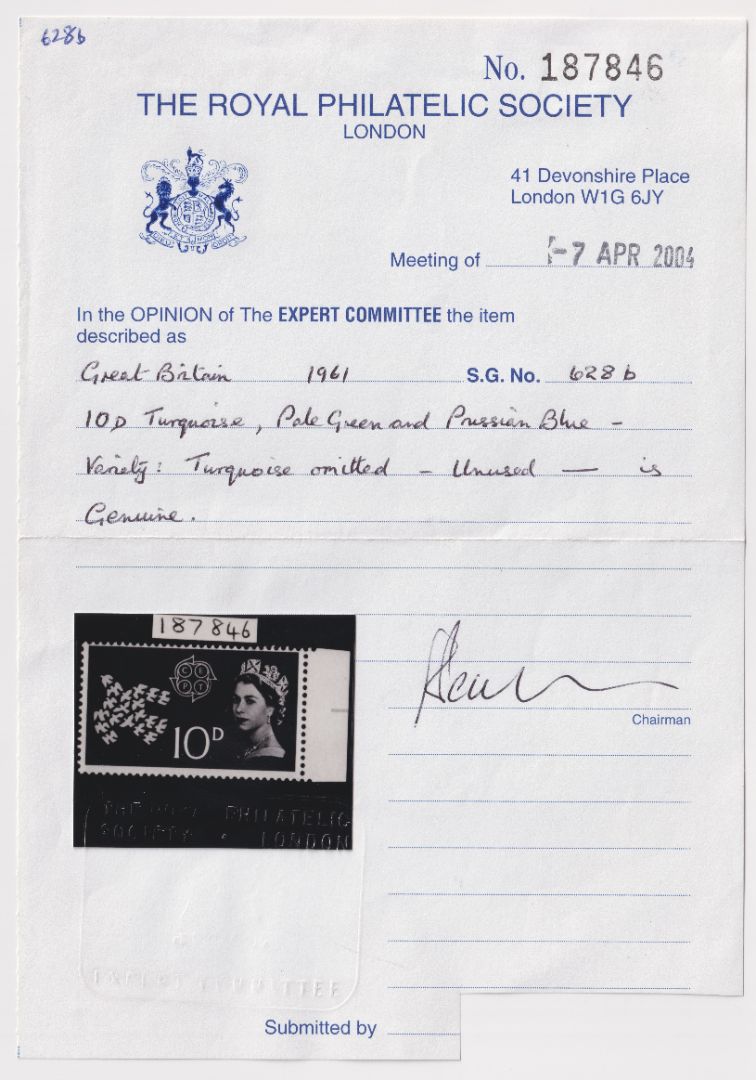 628b
No. 187846
THE ROYAL PHILATELIC SOCIETY
LONDON
41 Devonshire Place
London W1G 6JY
Meeting of -7 APR 2004
In the OPINION of The EXPERT COMMITTEE the item
described as
Great Britain 1961 S.G. No. 628b
10D Turquoise, Pale Green and Prussian Blue -
Variety: Turquoise omitted - Unused — is
Genuine.
187846
CEPT
10D
THE ROYAL PHILATELIC
SOCIETY • LONDON
Chairman
EXPERT COMMITTEE
Submitted by